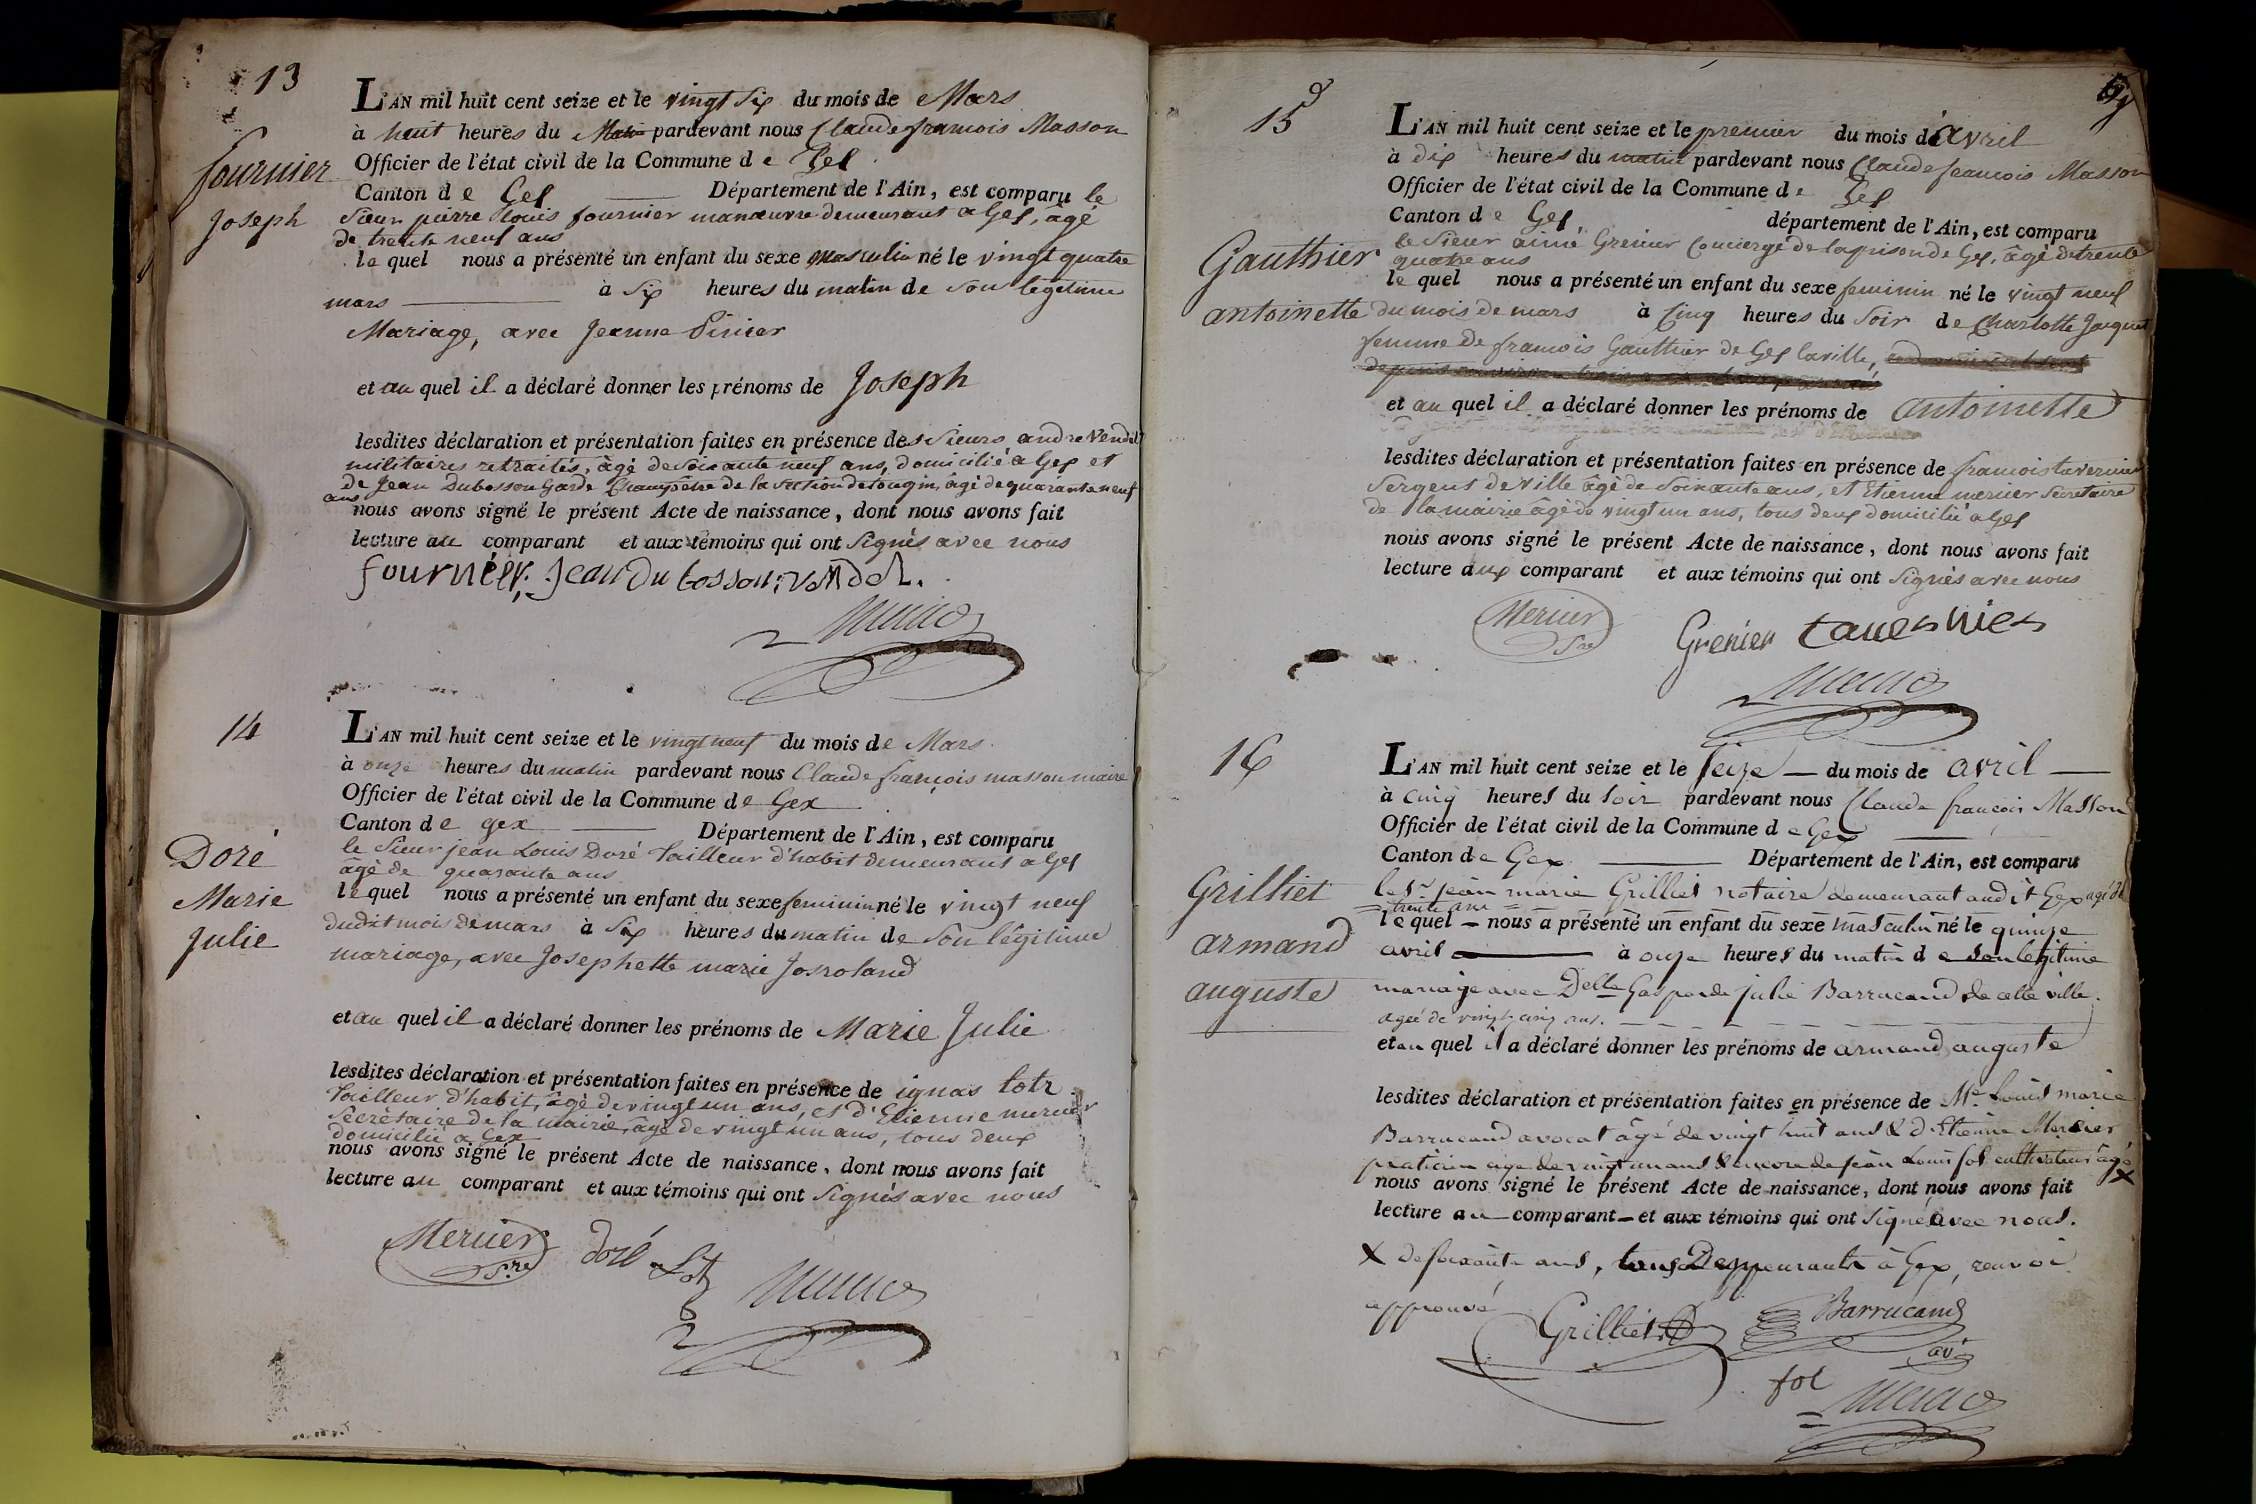 13
L'AN mil huit cent seize et le vingt Six du mois de Mars
à huit heures du Matin pardevant nous Claude francois Masson
Officier de l'état civil de la Commune de Gex
fournier
Joseph
Canton de Gex Département de l'Ain, est comparu le
Sieur pierre Louis fournier manœuvre demeurant a Gex, âgé
de trente neuf ans
le quel nous a présenté un enfant du sexe Masculin né le vingt quatre
mars à Six heures du matin de Son légitime
Mariage, avec Jeanne
et au quel il a déclaré donner les prénoms de Joseph
lesdites déclaration et présentation faites en présence des Sieurs andre Vendel
militaires retraités, âgé de Soixante neuf ans, domicilié a Gex et
de Jean Dubosson Garde Champêtre de la Section de tougin, âgé de quarante neuf
ans
nous avons signé le présent Acte de naissance, dont nous avons fait
lecture au comparant et aux témoins qui ont Signés avec nous
fournier, Jean Dubosson, vandel.
14
L'AN mil huit cent seize et le vingt neuf du mois de Mars
à onze heures du matin pardevant nous Claude françois masson maire
Officier de l'état civil de la Commune de Gex
Canton de gex Département de l'Ain, est comparu
Doré
Marie
Julie
le Sieur jean Louis Doré tailleur d'habit demeurant a Gex
âgé de quarante ans
le quel nous a présenté un enfant du sexe feminin né le vingt neuf
dudit mois de mars à Six heures du matin de Son légitime
mariage, avec Josephette marie Josroland
et au quel il a déclaré donner les prénoms de Marie Julie
lesdites déclaration et présentation faites en présence de ignas lotz
tailleur d'habit, âgé de vingt un ans, et d'Etienne mercier
Secrétaire de la mairie, âgé de vingt un ans, tous deux
domicilié a Gex
nous avons signé le présent Acte de naissance, dont nous avons fait
lecture au comparant et aux témoins qui ont Signés avec nous
Mercier Sre doré Lotz
15
L'AN mil huit cent seize et le premier du mois d'avril
à dix heures du matin pardevant nous Claude francois Masson
Officier de l'état civil de la Commune de Gex
Canton de Gex département de l'Ain, est comparu
Gauthier
antoinette
le Sieur aimé Grenier Concierge de la prison de Gex, âgé de trente
quatre ans
le quel nous a présenté un enfant du sexe feminin né le vingt neuf
du mois de mars à Cinq heures du Soir de Charlotte Jacquet
femme de francois Gauthier de Gex la ville,
et au quel il a déclaré donner les prénoms de antoinette
lesdites déclaration et présentation faites en présence de francois tavernier
Sergent de ville âgé de Soixante ans, et Etienne mercier Secretaire
de la mairie âgé de vingt un ans, tous deux domicilié a Gex
nous avons signé le présent Acte de naissance, dont nous avons fait
lecture aux comparant et aux témoins qui ont Signés avec nous
Mercier Sre Grenier tavernier
16
L'AN mil huit cent seize et le Seize du mois de avril
à cinq heures du soir pardevant nous Claude françois Masson
Officier de l'état civil de la Commune de Gex
Canton de Gex Département de l'Ain, est comparu
Grilliet
armand
auguste
le Sr jean marie Grilliet notaire demeurant audit Gex agé de
trente ans
le quel nous a présenté un enfant du sexe masculin né le quinze
avril à onze heures du matin de son légitime
mariage avec Delle Gasparde julie Barrucand de cette ville
agée de vingt cinq ans.
et au quel il a déclaré donner les prénoms de armand auguste
lesdites déclaration et présentation faites en présence de Me Louis marie
Barrucand avocat âgé de vingt huit ans & d'Etienne Mercier
praticien age de vingt un ans & encore de jean Louis fol cultivateur âgé
nous avons signé le présent Acte de naissance, dont nous avons fait
lecture au comparant et aux témoins qui ont signé avec nous.
X de soixante ans, tous Demeurants à Gex, renvoi
approuvé
Grilliet Barrucand
av
fol